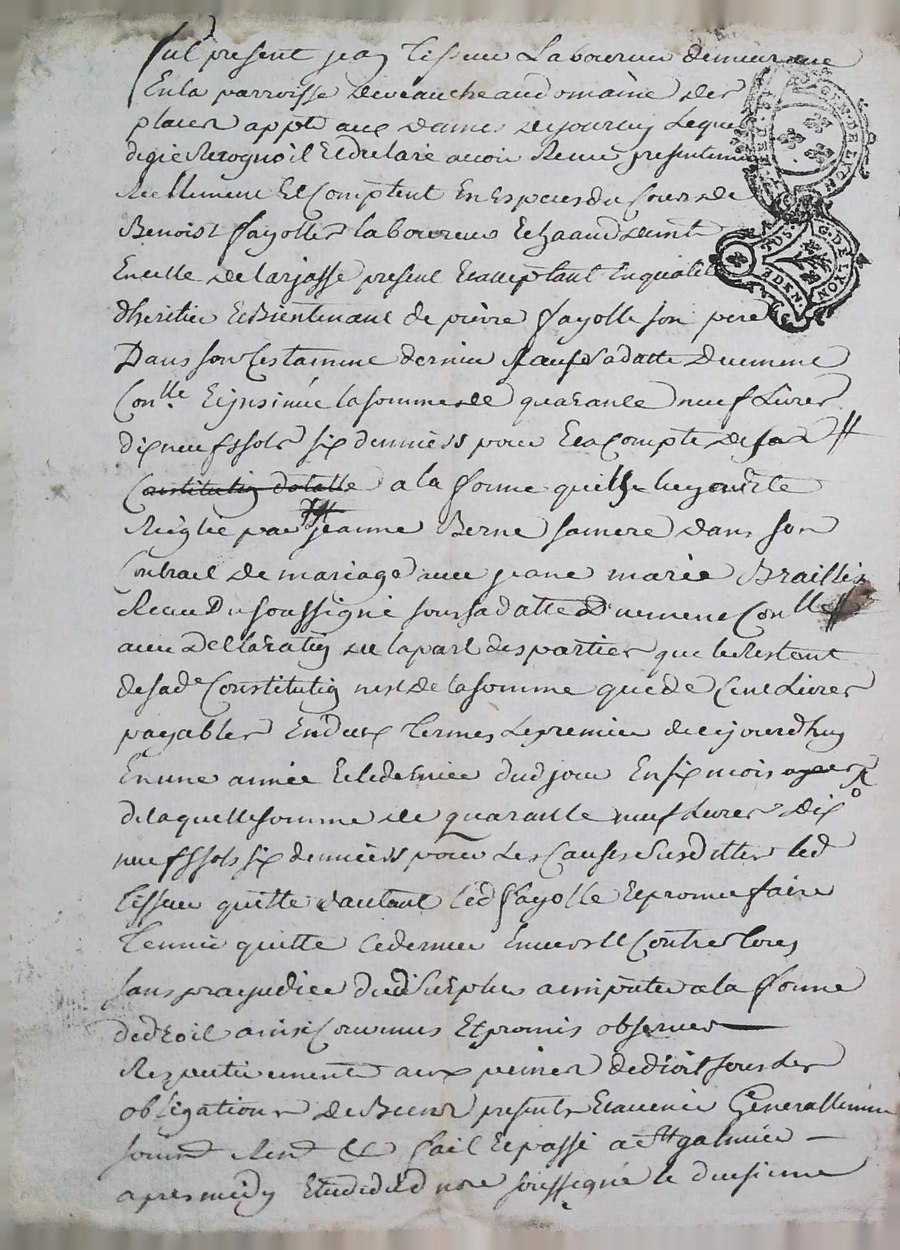 fut present jean tisseur Laboureur demeurant
En la parroisse deveauche au domaine des
places appt aux Dames de jourcey Lequel
de gré Recognoit Et declaré avoir Receu presentement
Reellement Et Comptent En Especes du Cours de
Benoist fayolle laboureur
En celle de larjasse present Et acceptant En qualité
dheritier Et Bientenant de pierre fayolle son pere
Dans son testament dernier sa datte
Conlle Et insinué la somme de quarante neuf Livres
dix neuf sols six denniers pour Et a Compte de sa #
Constitution dotalle a la forme quelle luy
Reiglée par jeanne Berne sa mere dans son
Contract de mariage avec jeane marie
Receu Du soussigné sous sa datte Conlle #
avec Declaration de la part des parties que le Restant
de sade Constitution nest de la somme que de Cent Livres
payables En deux termes le premier de ce jourdhuy
En une année Et le dernier dud jour En six mois apres
de laquelle somme de quarante neuf Livres Dix
neuf sols six denniers pour les Causes susdittes led
tisseur quitte dautant led fayolle Et promet faire
tenir quitte ce dernier Envers Et Contre tous
sans prejudice dud surplus a la forme
de droit ainsi Convenus Et promis observer
Respectivement aux peines de droit sous les
obligations de Biens presents Et avenir Generallement
soumt Rent &c fait Et passé a St galmier
apres midy Etude dud nore soussigné le deusieme
G. DE LYON